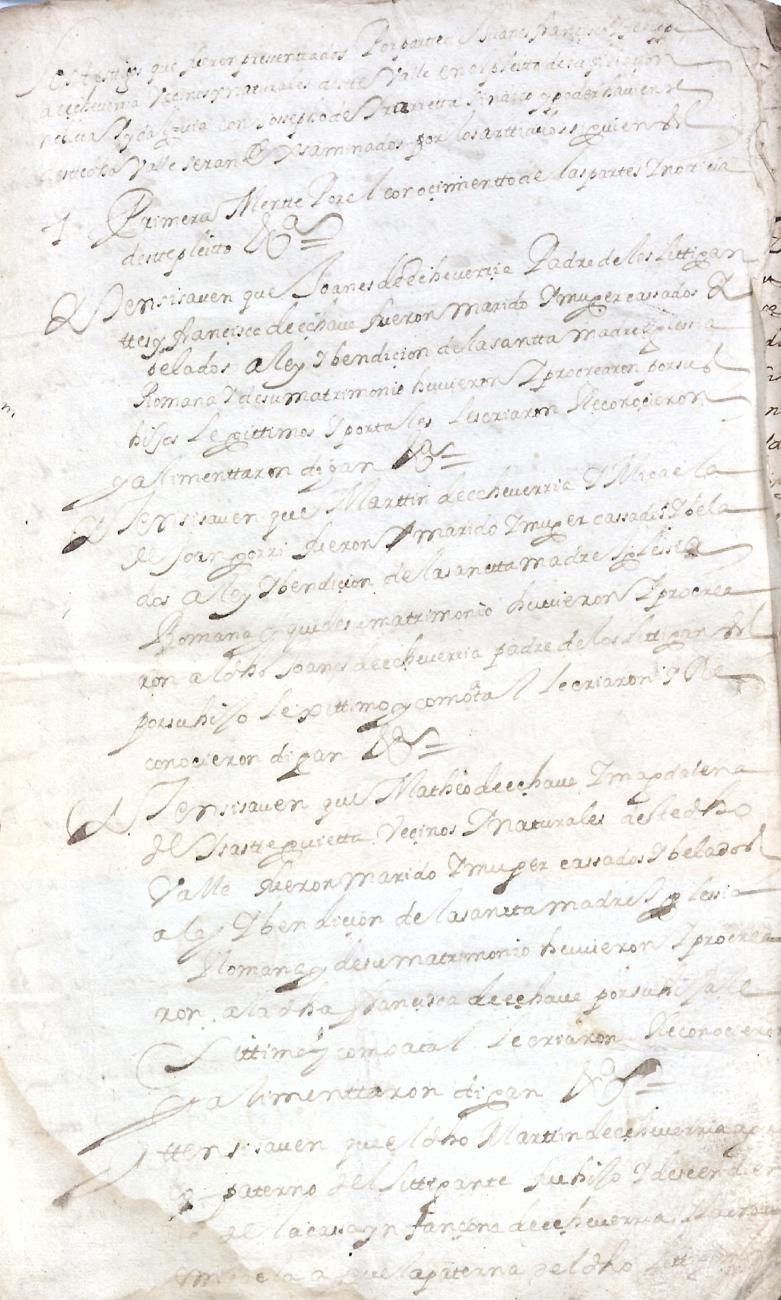 Los testigos que fueren presentados Por parte de Juanes francisco de
de echeverria Vecinos y naturales deste Valle en el pleito de su filiacion
nobleça y hidalguia con Joseph de Yrarreta sindico y poder haviente
deste dho Valle seran exsaminados por los artticulos siguientes
1 Primera Mente Por el conocimiento de las partes Y noticia
deste pleitto &a
Yten si saven que Joanes de echeverria Padre de los littigan
ttes y francisca de echave fueron marido Y muger cassados &
belados a ley Y bendicion de la santta madre Yglessia
Romana Y de su matrimonio huvieron Y procrearon por sus
hijos legittimos Y por tales les criaron Reconocieron
y alimenttaron digan &a
Yten si saven que Marttin de echeverria Y Micaela
de Joangorri fueron marido Y muger cassados Y bela
dos a ley Y bendicion de la santta madre Yglessia
Romana y que de su matrimonio huvieron Y procrea
ron al dho Joanes de echeverria padre de los littigantes
por su hijo lexittimo y como tal le criaron Y Re
conocieron digan &a
Yten si saven que Matheo de echave Y magdalena
de Yrastorguietta Vecinos Y Naturales deste dho
Valle fueron marido Y muger cassados Y belados
a ley Y bendicion de la santta madre Yglessia
Romana y de su matrimonio huvieron Y procrea
ron a la dha francisca de echave por su hija le
gittima y como a tal le criaron Reconocieron
y alimenttaron digan &a
Ytten si saven que el dho Marttin de echeverria
paterno del littigante fue hijo Y descendien
de la cassa ynfançona de echeverria
paterna del dho